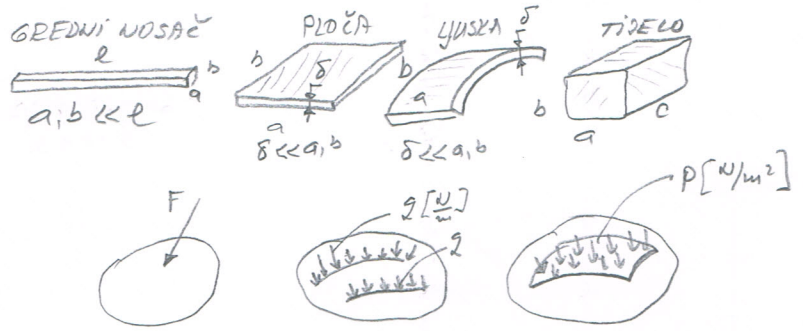 GREDNI NOSAČ
l
b
a
a,b << l
PLOČA
b
δ
b
a
δ << a,b
LJUSKA
δ
a
δ << a,b
TIJELO
b
a
c
F
q [N/m]
q
p [N/m²]